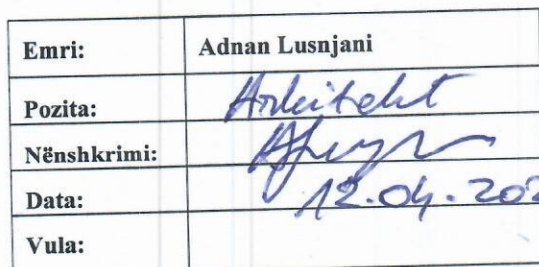 Emri: Adnan Lusnjani
Pozita: Arkitekt
Nënshkrimi:
Data: 12.04.202
Vula: